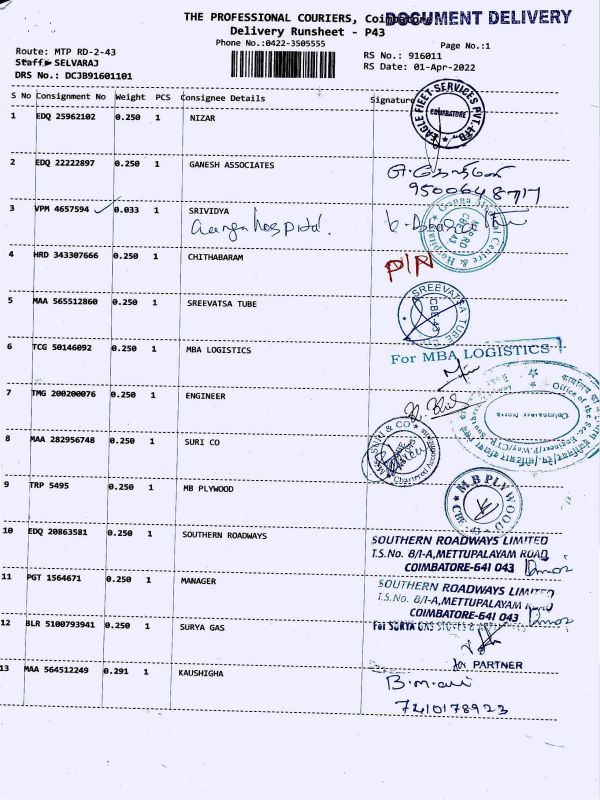 THE PROFESSIONAL COURIERS, Coimbatore
DOCUMENT DELIVERY
Delivery Runsheet - P43
Phone No.:0422-3505555
Page No.:1
Route: MTP RD-2-43
RS No.: 916011
Staff: SELVARAJ
RS Date: 01-Apr-2022
DRS No.: DCJB91601101
S No Consignment No Weight PCS Consignee Details Signature
1 EDQ 25962102 0.250 1 NIZAR
EAGLE FLEET SERVICES PVT. LTD.
COIMBATORE
2 EDQ 22222897 0.250 1 GANESH ASSOCIATES
9500648717
3 VPM 4657594 0.033 1 SRIVIDYA
Ganga hospital.
4 HRD 343307666 0.250 1 CHITHABARAM
P/N
5 MAA 565512860 0.250 1 SREEVATSA TUBE
SREEVATSA TUBE
6 TCG 50146092 0.250 1 MBA LOGISTICS
For MBA LOGISTICS
7 TMG 200200076 0.250 1 ENGINEER
Coimbatore North
8 MAA 282956748 0.250 1 SURI CO
Chartered Accountants
9 TRP 5495 0.250 1 MB PLYWOOD
M B PLYWOOD
10 EDQ 20863581 0.250 1 SOUTHERN ROADWAYS
SOUTHERN ROADWAYS LIMITED
T.S.No. 8/I-A,METTUPALAYAM ROAD
COIMBATORE-641 043
11 PGT 1564671 0.250 1 MANAGER
SOUTHERN ROADWAYS LIMITED
T.S.No. 8/I-A,METTUPALAYAM ROAD
COIMBATORE-641 043
12 BLR 5100793941 0.250 1 SURYA GAS
For SURYA GAS
for PARTNER
13 MAA 564512249 0.291 1 KAUSHIGHA
7210178923